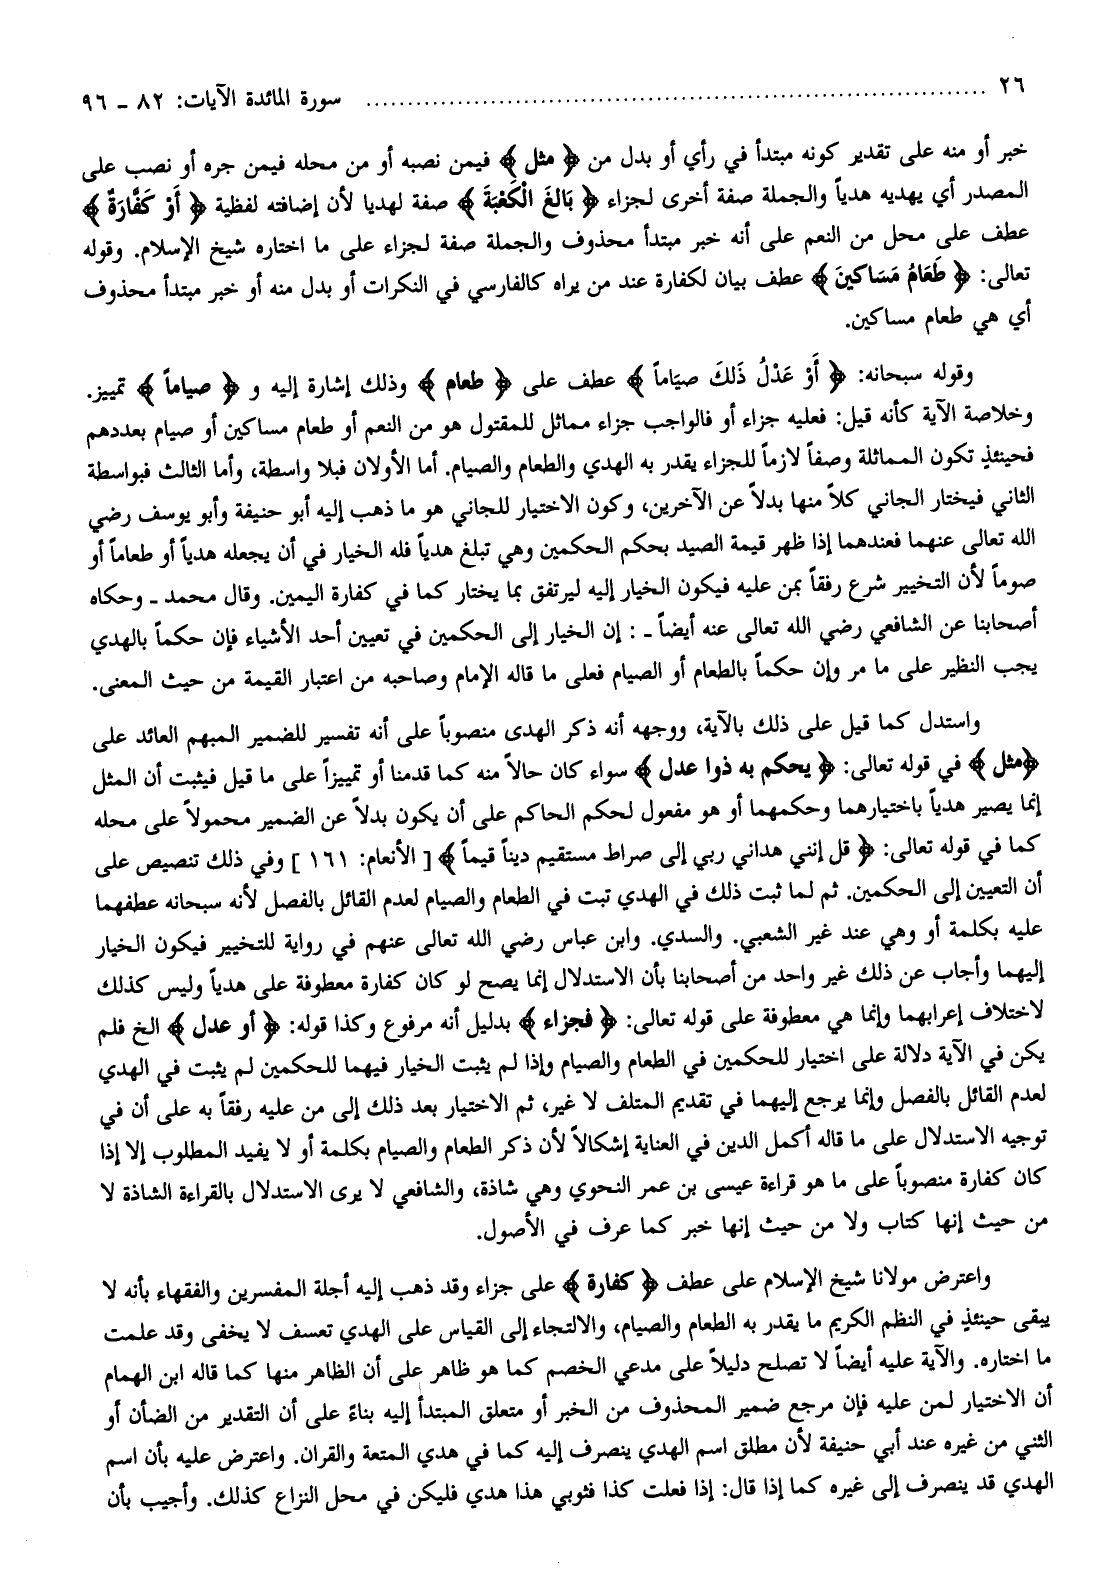 ٢٦ .......... سورة المائدة الآيات: ٨٢ ـ ٩٦
خبر أو منه على تقدير كونه مبتدأ في رأي أو بدل من ﴿ مثل ﴾ فيمن نصبه أو من محله فيمن جره أو نصب على
المصدر أي يهديه هدياً والجملة صفة أخرى لجزاء ﴿ بَالِغَ الْكَعْبَةَ ﴾ صفة لهديا لأن إضافته لفظية ﴿ أَوْ كَفَّارَةٌ ﴾
عطف على محل من النعم على أنه خبر مبتدأ محذوف والجملة صفة لجزاء على ما اختاره شيخ الإسلام. وقوله
تعالى: ﴿ طَعَامُ مَسَاكِينَ ﴾ عطف بيان لكفارة عند من يراه كالفارسي في النكرات أو بدل منه أو خبر مبتدأ محذوف
أي هي طعام مساكين.
وقوله سبحانه: ﴿ أَوْ عَدْلُ ذَلكَ صيَاماً ﴾ عطف على ﴿ طعام ﴾ وذلك إشارة إليه و ﴿ صياماً ﴾ تمييز.
وخلاصة الآية كأنه قيل: فعليه جزاء أو فالواجب جزاء مماثل للمقتول هو من النعم أو طعام مساكين أو صيام بعددهم
فحينئذٍ تكون المماثلة وصفاً لازماً للجزاء يقدر به الهدي والطعام والصيام. أما الأولان فبلا واسطة، وأما الثالث فبواسطة
الثاني فيختار الجاني كلاً منها بدلاً عن الآخرين، وكون الاختيار للجاني هو ما ذهب إليه أبو حنيفة وأبو يوسف رضي
الله تعالى عنهما فعندهما إذا ظهر قيمة الصيد بحكم الحكمين وهي تبلغ هدياً فله الخيار في أن يجعله هدياً أو طعاماً أو
صوماً لأن التخيير شرع رفقاً بمن عليه فيكون الخيار إليه ليرتفق بما يختار كما في كفارة اليمين. وقال محمد ـ وحكاه
أصحابنا عن الشافعي رضي الله تعالى عنه أيضاً ـ : إن الخيار إلى الحكمين في تعيين أحد الأشياء فإن حكماً بالهدي
يجب النظير على ما مر وإن حكماً بالطعام أو الصيام فعلى ما قاله الإمام وصاحبه من اعتبار القيمة من حيث المعنى.
واستدل كما قيل على ذلك بالآية، ووجهه أنه ذكر الهدى منصوباً على أنه تفسير للضمير المبهم العائد على
﴿مثل ﴾ في قوله تعالى: ﴿ يحكم به ذوا عدل ﴾ سواء كان حالاً منه كما قدمنا أو تمييزاً على ما قيل فيثبت أن المثل
إنما يصير هدياً باختيارهما وحكمهما أو هو مفعول لحكم الحاكم على أن يكون بدلاً عن الضمير محمولاً على محله
كما في قوله تعالى: ﴿ قل إنني هداني ربي إلى صراط مستقيم ديناً قيماً ﴾ [ الأنعام: ١٦١ ] وفي ذلك تنصيص على
أن التعيين إلى الحكمين. ثم لما ثبت ذلك في الهدي تبت في الطعام والصيام لعدم القائل بالفصل لأنه سبحانه عطفهما
عليه بكلمة أو وهي عند غير الشعبي. والسدي. وابن عباس رضي الله تعالى عنهم في رواية للتخيير فيكون الخيار
إليهما وأجاب عن ذلك غير واحد من أصحابنا بأن الاستدلال إنما يصح لو كان كفارة معطوفة على هدياً وليس كذلك
لاختلاف إعرابهما وإنما هي معطوفة على قوله تعالى: ﴿ فجزاء ﴾ بدليل أنه مرفوع وكذا قوله: ﴿ أو عدل ﴾ الخ فلم
يكن في الآية دلالة على اختيار للحكمين في الطعام والصيام وإذا لم يثبت الخيار فيهما للحكمين لم يثبت في الهدي
لعدم القائل بالفصل وإنما يرجع إليهما في تقديم المتلف لا غير، ثم الاختيار بعد ذلك إلى من عليه رفقاً به على أن في
توجيه الاستدلال على ما قاله أكمل الدين في العناية إشكالاً لأن ذكر الطعام والصيام بكلمة أو لا يفيد المطلوب إلا إذا
كان كفارة منصوباً على ما هو قراءة عيسى بن عمر النحوي وهي شاذة، والشافعي لا يرى الاستدلال بالقراءة الشاذة لا
من حيث إنها كتاب ولا من حيث إنها خبر كما عرف في الأصول.
واعترض مولانا شيخ الإسلام على عطف ﴿ كفارة ﴾ على جزاء وقد ذهب إليه أجلة المفسرين والفقهاء بأنه لا
يبقى حينئذٍ في النظم الكريم ما يقدر به الطعام والصيام، والالتجاء إلى القياس على الهدي تعسف لا يخفى وقد علمت
ما اختاره. والآية عليه أيضاً لا تصلح دليلاً على مدعي الخصم كما هو ظاهر على أن الظاهر منها كما قاله ابن الهمام
أن الاختيار لمن عليه فإن مرجع ضمير المحذوف من الخبر أو متعلق المبتدأ إليه بناءً على أن التقدير من الضأن أو
الثني من غيره عند أبي حنيفة لأن مطلق اسم الهدي ينصرف إليه كما في هدي المتعة والقران. واعترض عليه بأن اسم
الهدي قد ينصرف إلى غيره كما إذا قال: إذا فعلت كذا فثوبي هذا هدي فليكن في محل النزاع كذلك. وأجيب بأن